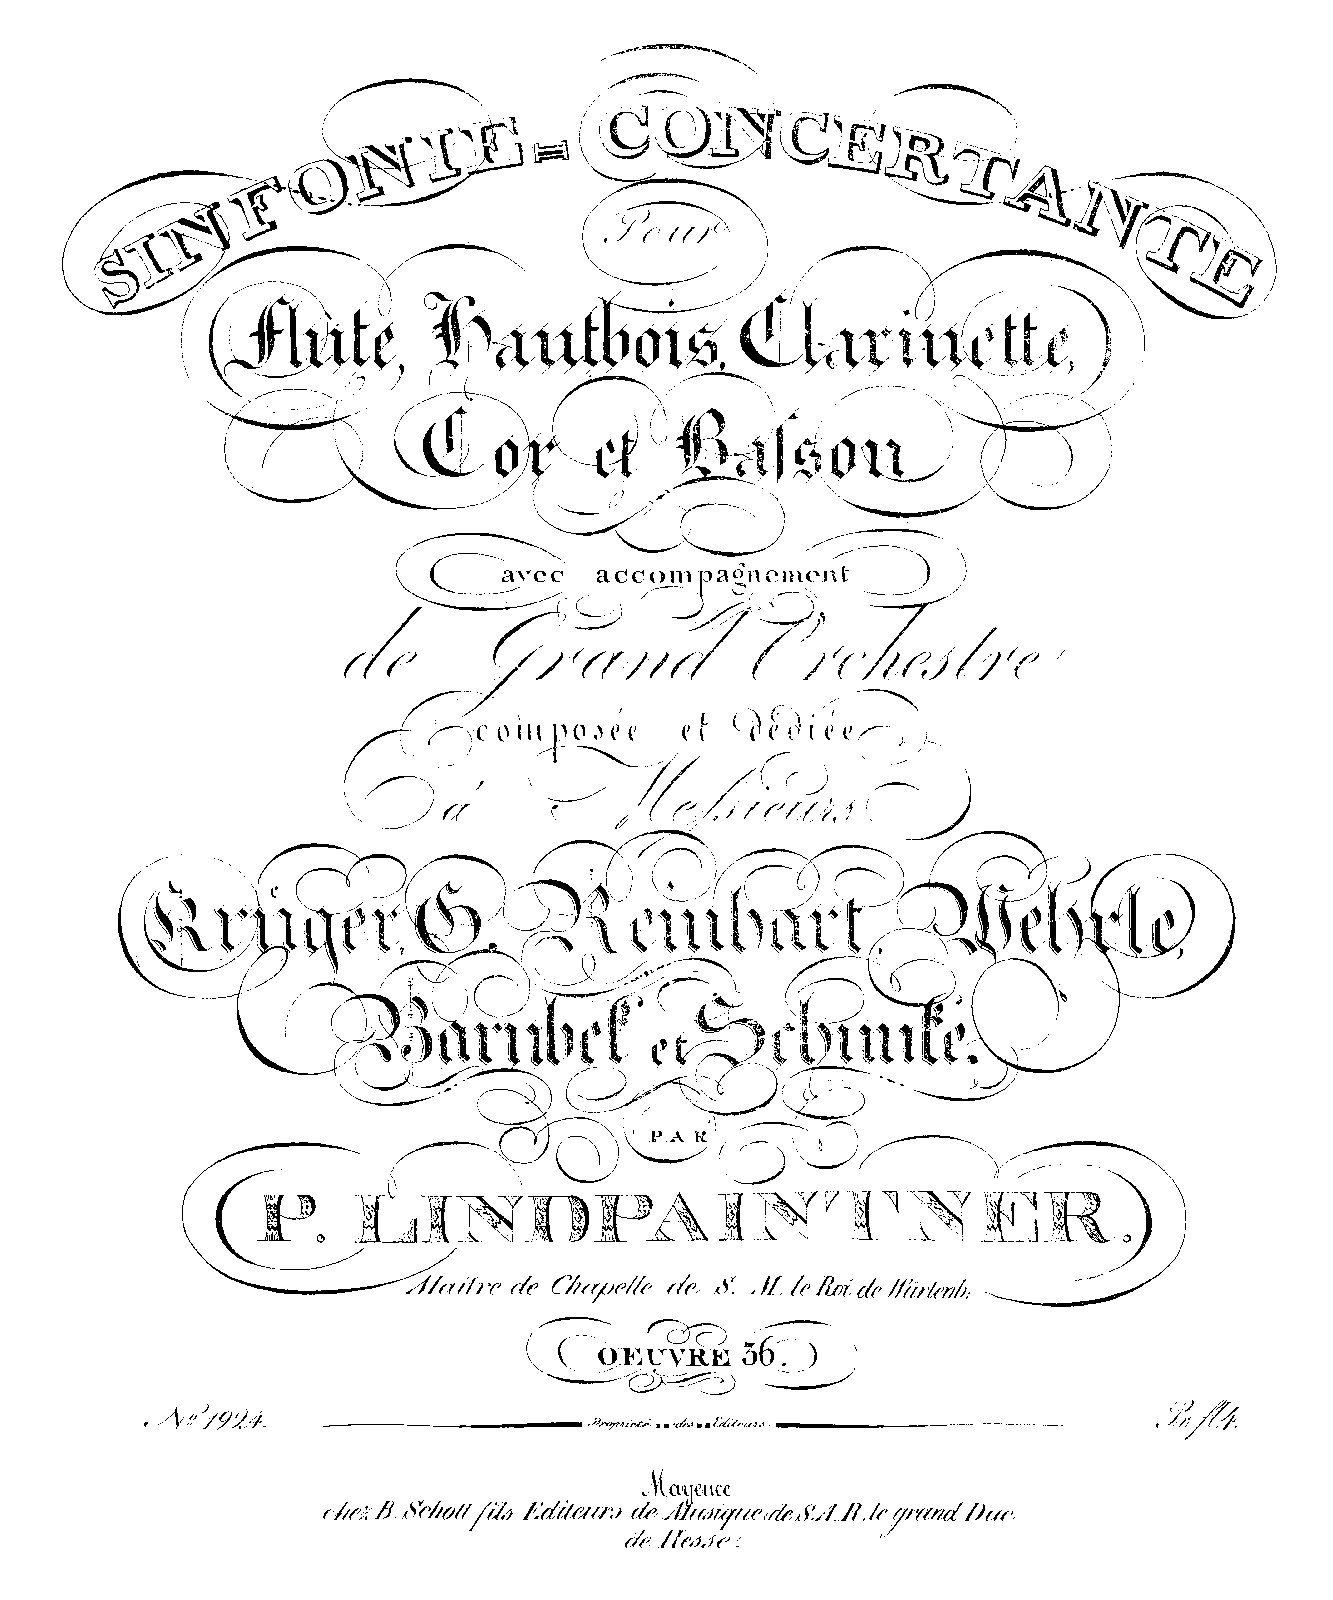 SINFONIE = CONCERTANTE
Pour
Flute, Hautbois, Clarinette,
Cor et Baſson
avec accompagnement
de Grand Orchestre
composée et dédiée
à Meſsieurs
Krüger, G. Reinhart Wehrle,
Barnbek et Schunke.
PAR
P. LINDPAINTNER.
Maitre de Chapelle de S. M. le Roi de Würtenb:
OEUVRE 36.
No. 1924.
Proprieté des Editeurs
Pr. fl 4.
Mayence
chez B. Schott fils Editeurs de Musique de S.A.R. le grand Duc
de Hesse: